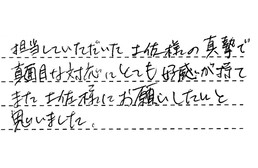 担当していただいた土佐様の真摯で
真面目な対応にとても好感が持て
また土佐様にお願いしたいと
思いました。